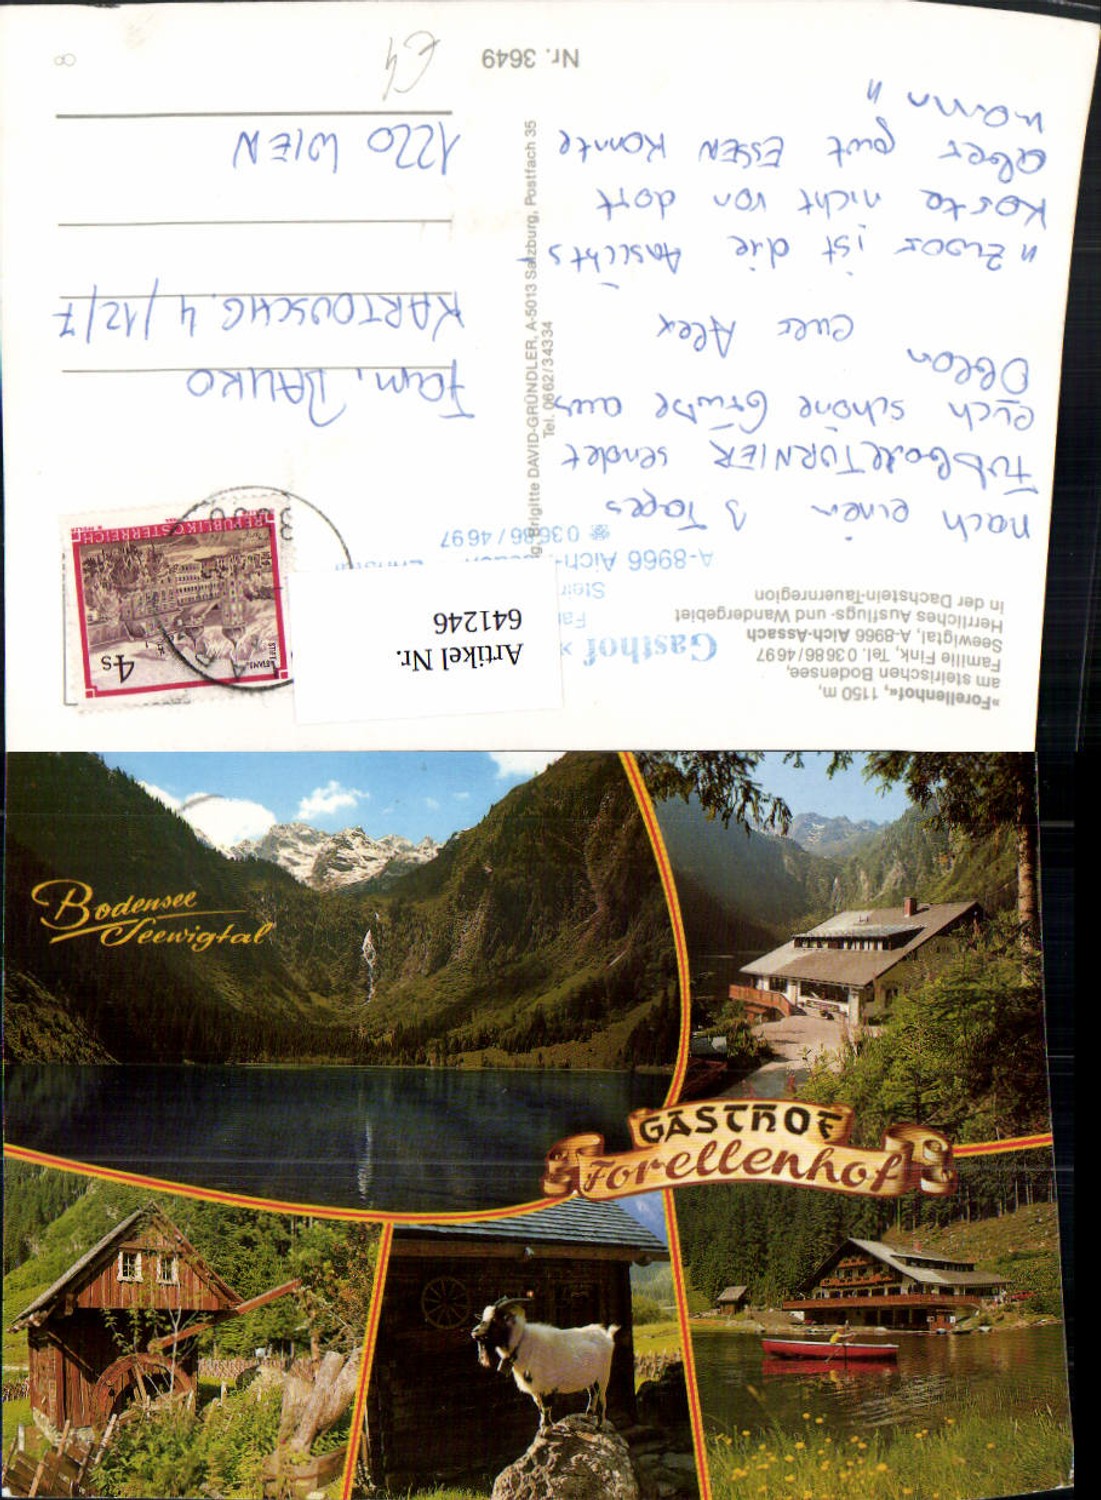 »Forellenhof«, 1150 m,
am steirischen Bodensee,
Familie Fink, Tel. 0 36 86/46 97
Seewigtal, A-8966 Aich-Assach
Herrliches Ausflugs- und Wandergebiet
in der Dachstein-Tauernregion
Gasthof
A-8966 Aich-
0 36 86 / 46 97
nach einem 3 Tages
FUßballTURNIER sendet
euch schöne Grüße aus
Oblarn
euer Alex
"Zwar ist die Ansichts-
Karte nicht von dort
aber gut ESSEN konnte
mann"
Brigitte DAVID-GRÜNDLER, A-5013 Salzburg, Postfach 35
Tel. 0662/34334
Nr. 3649
Artikel Nr.
641246
4s
REPUBLIK ÖSTERREICH
Fam.
KARTOUSCHG. 4/12/7
1220 WIEN
€4
8
Bodensee
Seewigtal
GASTHOF
Forellenhof